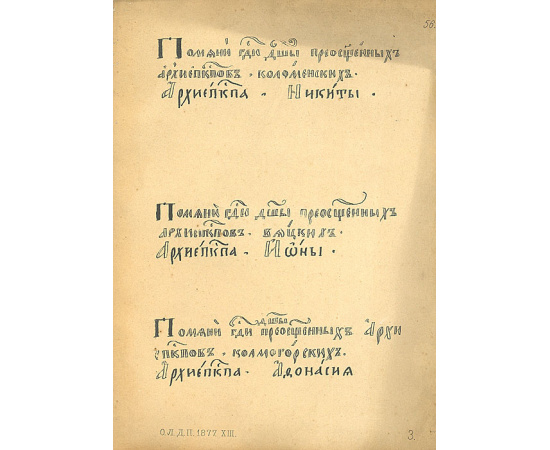 56.
Помяни гдⷭ҇и дш҃ы преосщ҃енныхъ
архиеп҃кповъ . коломенскихъ .
Архиеп҃кпа . Никиты .
Помяни гдⷭ҇и дш҃ы преосщ҃енныхъ
архиеп҃кповъ . вяцкихъ .
Архиеп҃кпа . Иѡны .
дш҃ы
Помяни гдⷭ҇и преосщ҃енныхъ Архи
еп҃кповъ . колмогорскихъ .
Архиеп҃кпа . Афонасия
О.Л.Д.П. 1877 XIII.
3.